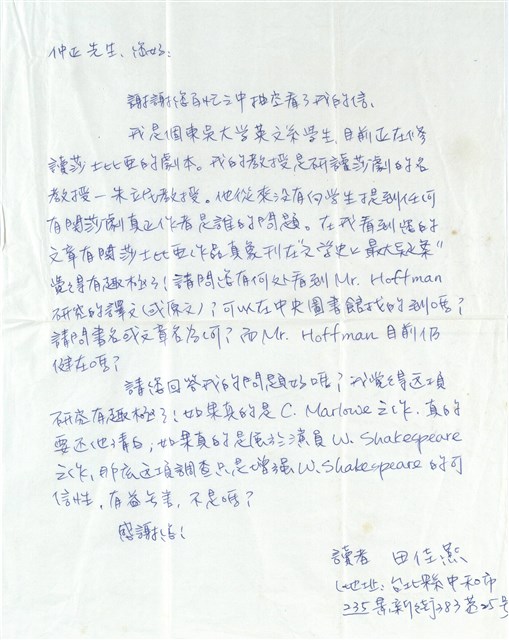 仲正先生、您好:
謝謝您百忙之中抽空看了我的信、
我是個東吳大学英文系學生,目前正在修
讀莎士比亞的劇本。我的教授是研讀莎劇的名
教授—朱立民教授。他從來沒有向學生提到任何
有關莎劇真正作者是誰的問題。在我看到您的
文章有關莎士比亞作品真象刊在"文学史上最大疑案"
覺得有趣極了!請問您有何处看到Mr. Hoffman
研究的譯文(或原文)?可以在中央圖書館找的到嗎?
請問書名或文章名為何?而Mr. Hoffman 目前仍
健在嗎?
請您回答我的問題好嗎?我覺得这項
研究有趣極了!如果真的是 C. Marlowe 之作,真的
要还他清白;如果真的是屬於演員 W. Shakespeare
之作,那麼这項調查只是增強 W. Shakespeare 的可
信性,有益无害,不是嗎?
感謝您!
讀者 田佳
地址:台北縣中和市
235景新街383巷25号